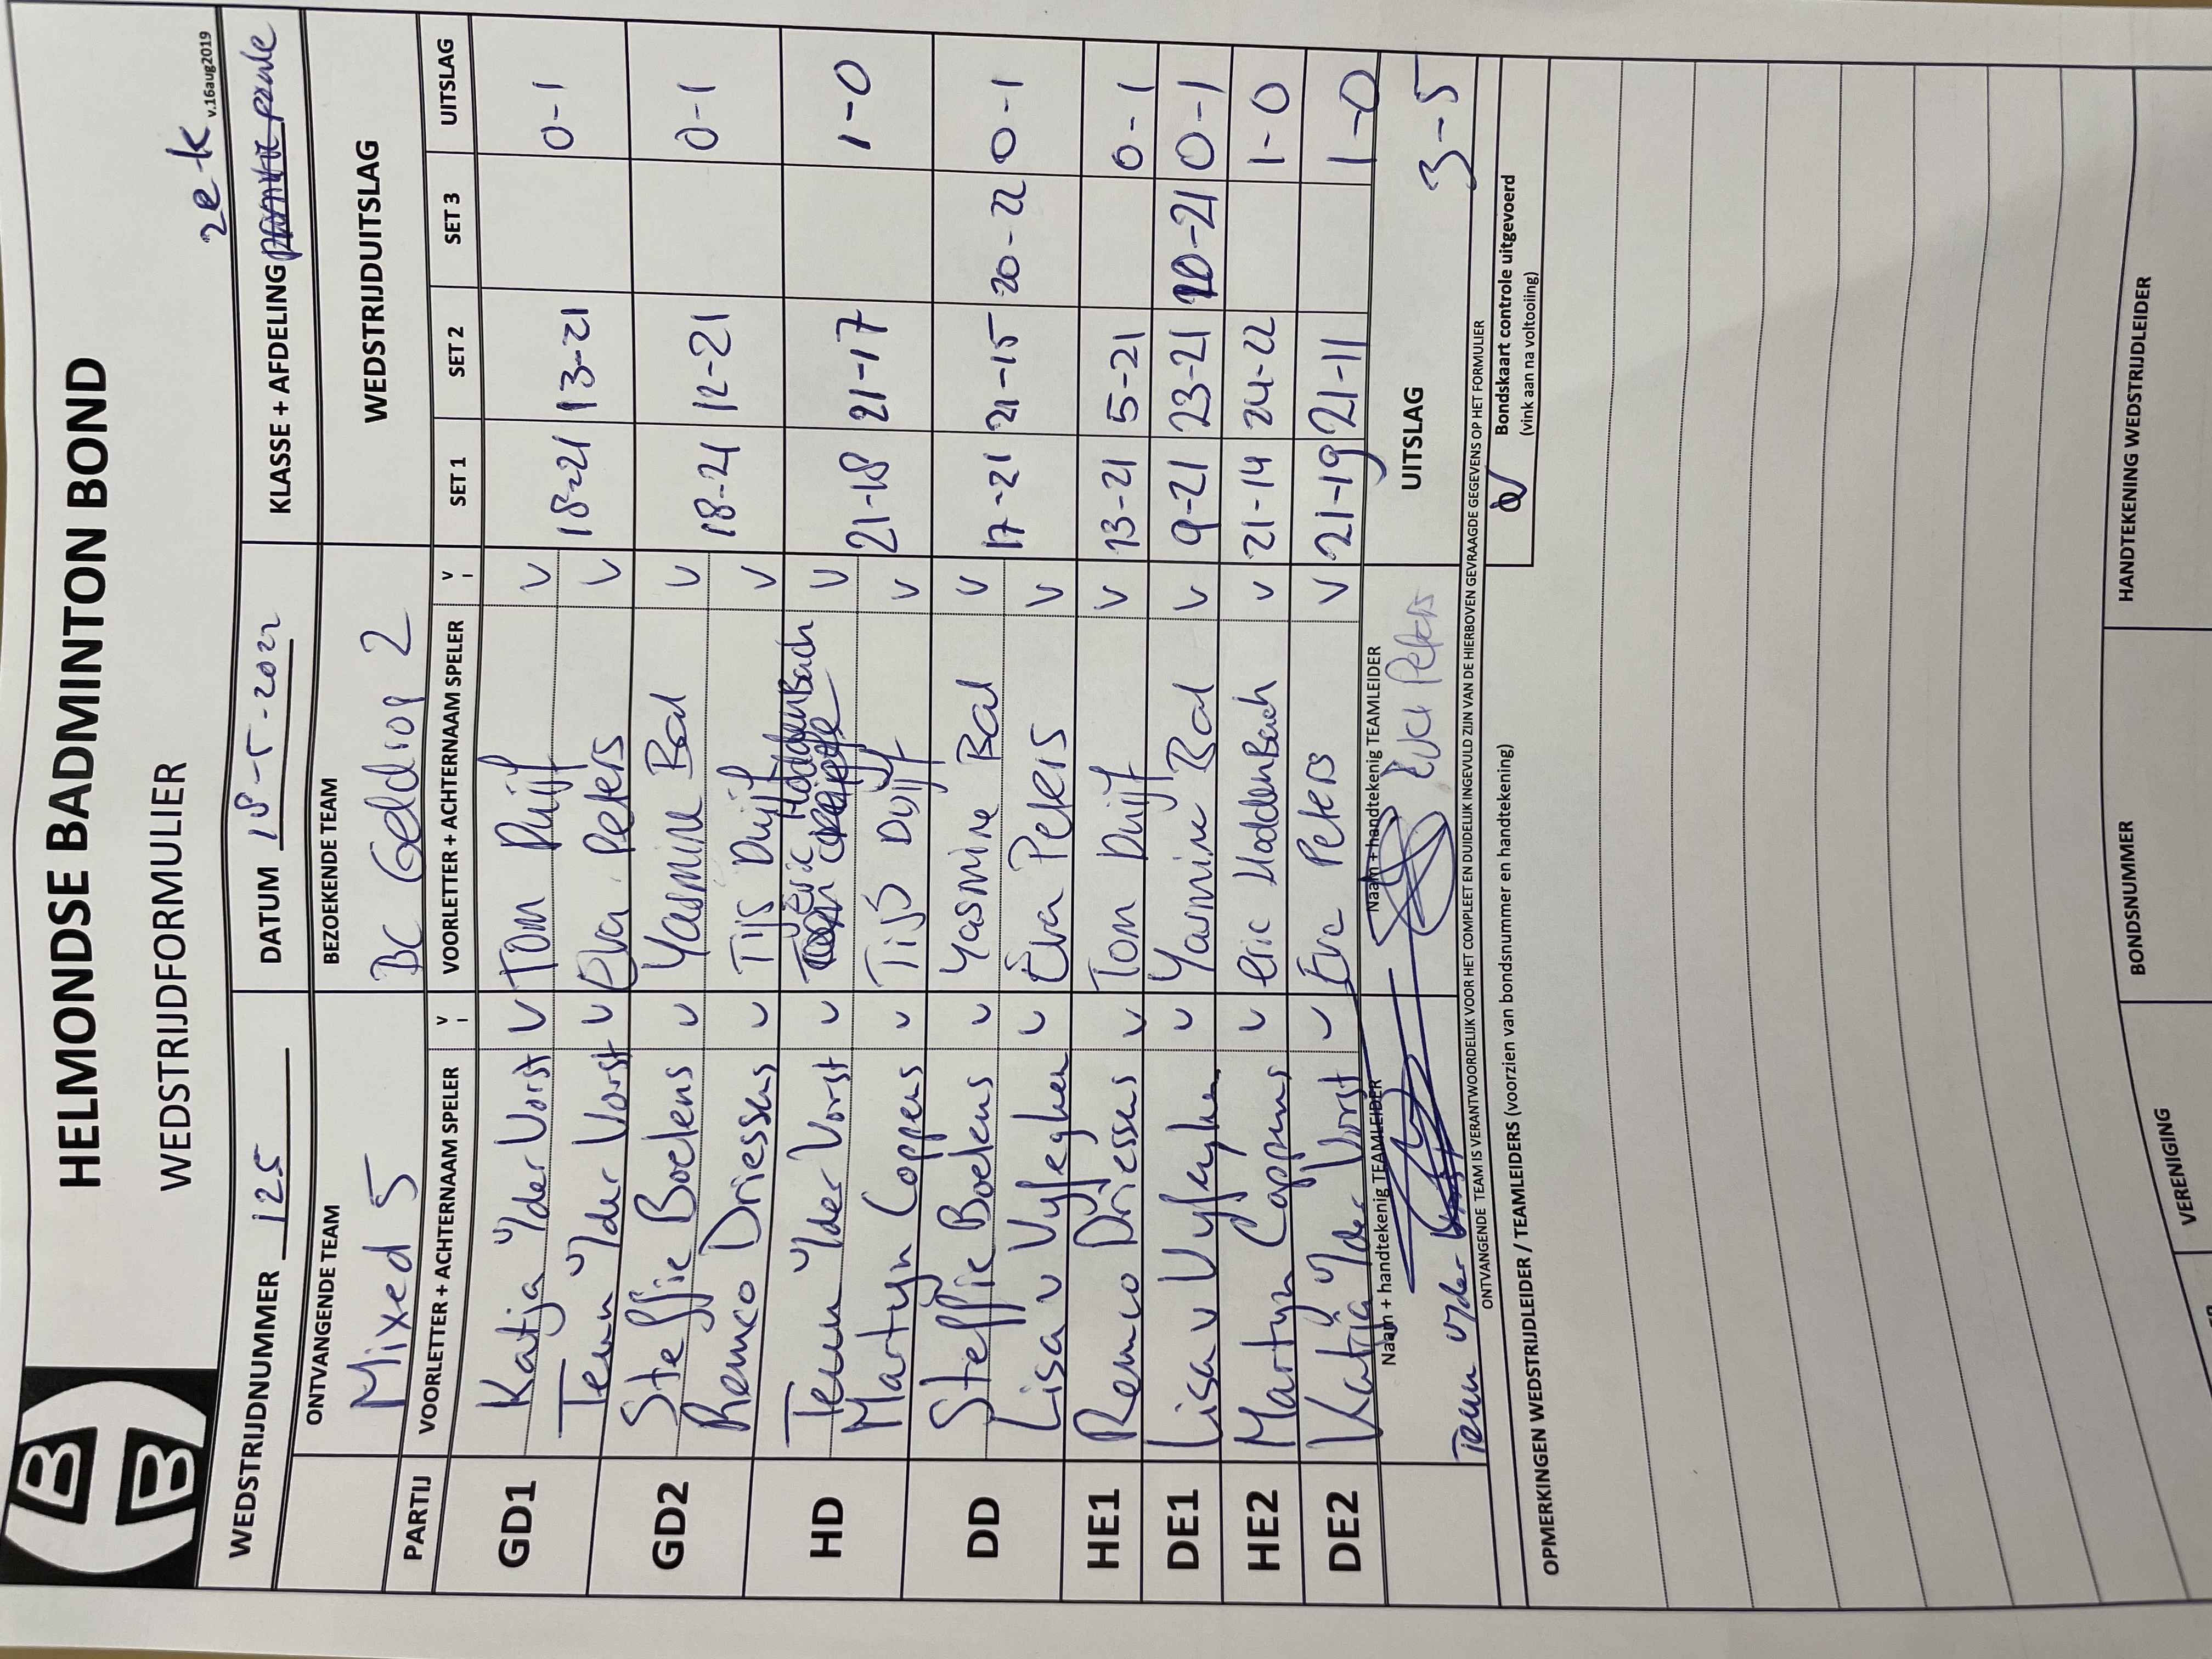 HELMONDSE BADMINTON BOND
WEDSTRIJDFORMULIER
v.16aug2019
2e k
WEDSTRIJDNUMMER 125 DATUM 18-5-2022 KLASSE + AFDELING
ONTVANGENDE TEAM BEZOEKENDE TEAM WEDSTRIJDUITSLAG
Mixed 5 BC Geldrop 2
PARTIJ VOORLETTER + ACHTERNAAM SPELER V VOORLETTER + ACHTERNAAM SPELER V SET 1 SET 2 SET 3 UITSLAG
GD1 Katja v/der Vorst V Tom Duijf V 18-21 13-21 0-1
Teun v/der Vorst V Eva Peters V
GD2 Steffie Boelens V Yasmine Bal V 18-21 12-21 0-1
Remco Driessens V Tijs Duijf V
HD Teun v/der Vorst V Eric HoddenBach V 21-18 21-17 1-0
Martyn Coppens V Tijs Duijf V
DD Steffie Boelens V Yasmine Bal V 17-21 21-15 20-22 0-1
Lisa v Vyfeyken V Eva Peters V
HE1 Remco Driessens V Tom Duijf V 13-21 5-21 0-1
DE1 Lisa v Vyfeyken V Yasmine Bal V 9-21 23-21 20-21 0-1
HE2 Martyn Coppens V Eric HoddenBach V 21-14 24-22 1-0
DE2 Katja v/der Vorst V Eva Peters V 21-19 21-11 1-0
Naam + handtekenig TEAMLEIDER Naam + handtekenig TEAMLEIDER UITSLAG 3-5
Teun v/der Vorst Eva Peters
ONTVANGENDE TEAM IS VERANTWOORDELIJK VOOR HET COMPLEET EN DUIDELIJK INGEVULD ZIJN VAN DE HIERBOVEN GEVRAAGDE GEGEVENS OP HET FORMULIER
Bondskaart controle uitgevoerd
(vink aan na voltooiing)
OPMERKINGEN WEDSTRIJDLEIDER / TEAMLEIDERS (voorzien van bondsnummer en handtekening)
VERENIGING BONDSNUMMER HANDTEKENING WEDSTRIJDLEIDER